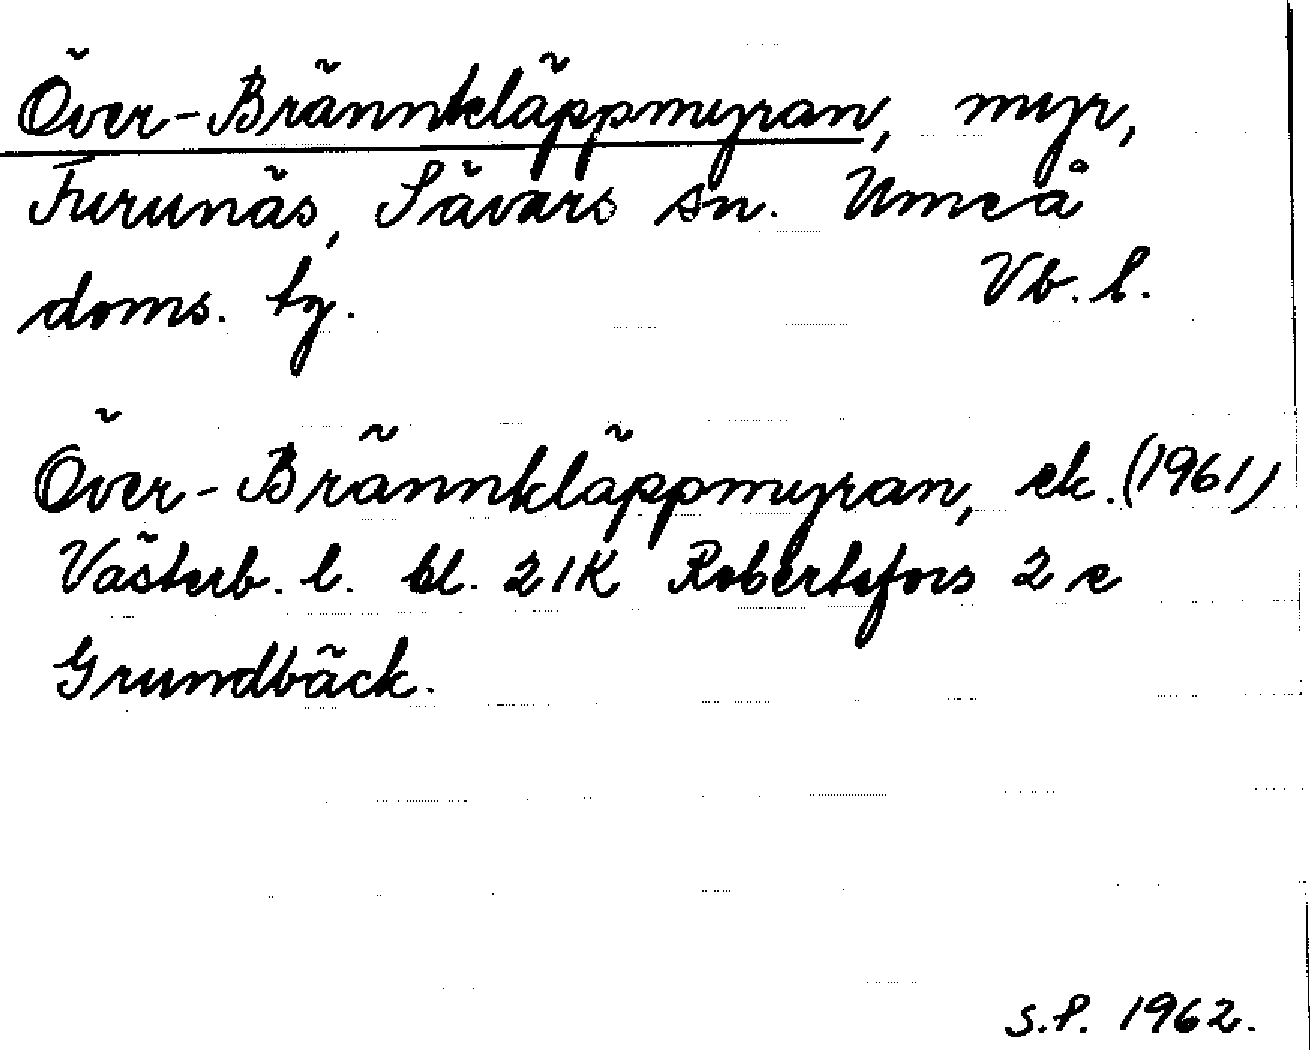 Över-Brännkläppmyran, myr,
Furunäs, Sävars sn. Umeå
doms. tg. Vb. l.
Över-Brännkläppmyran, ek. (1961)
Västerb. l. bl. 21K Robertsfors 2 e
Grundbäck.
S.P. 1962.